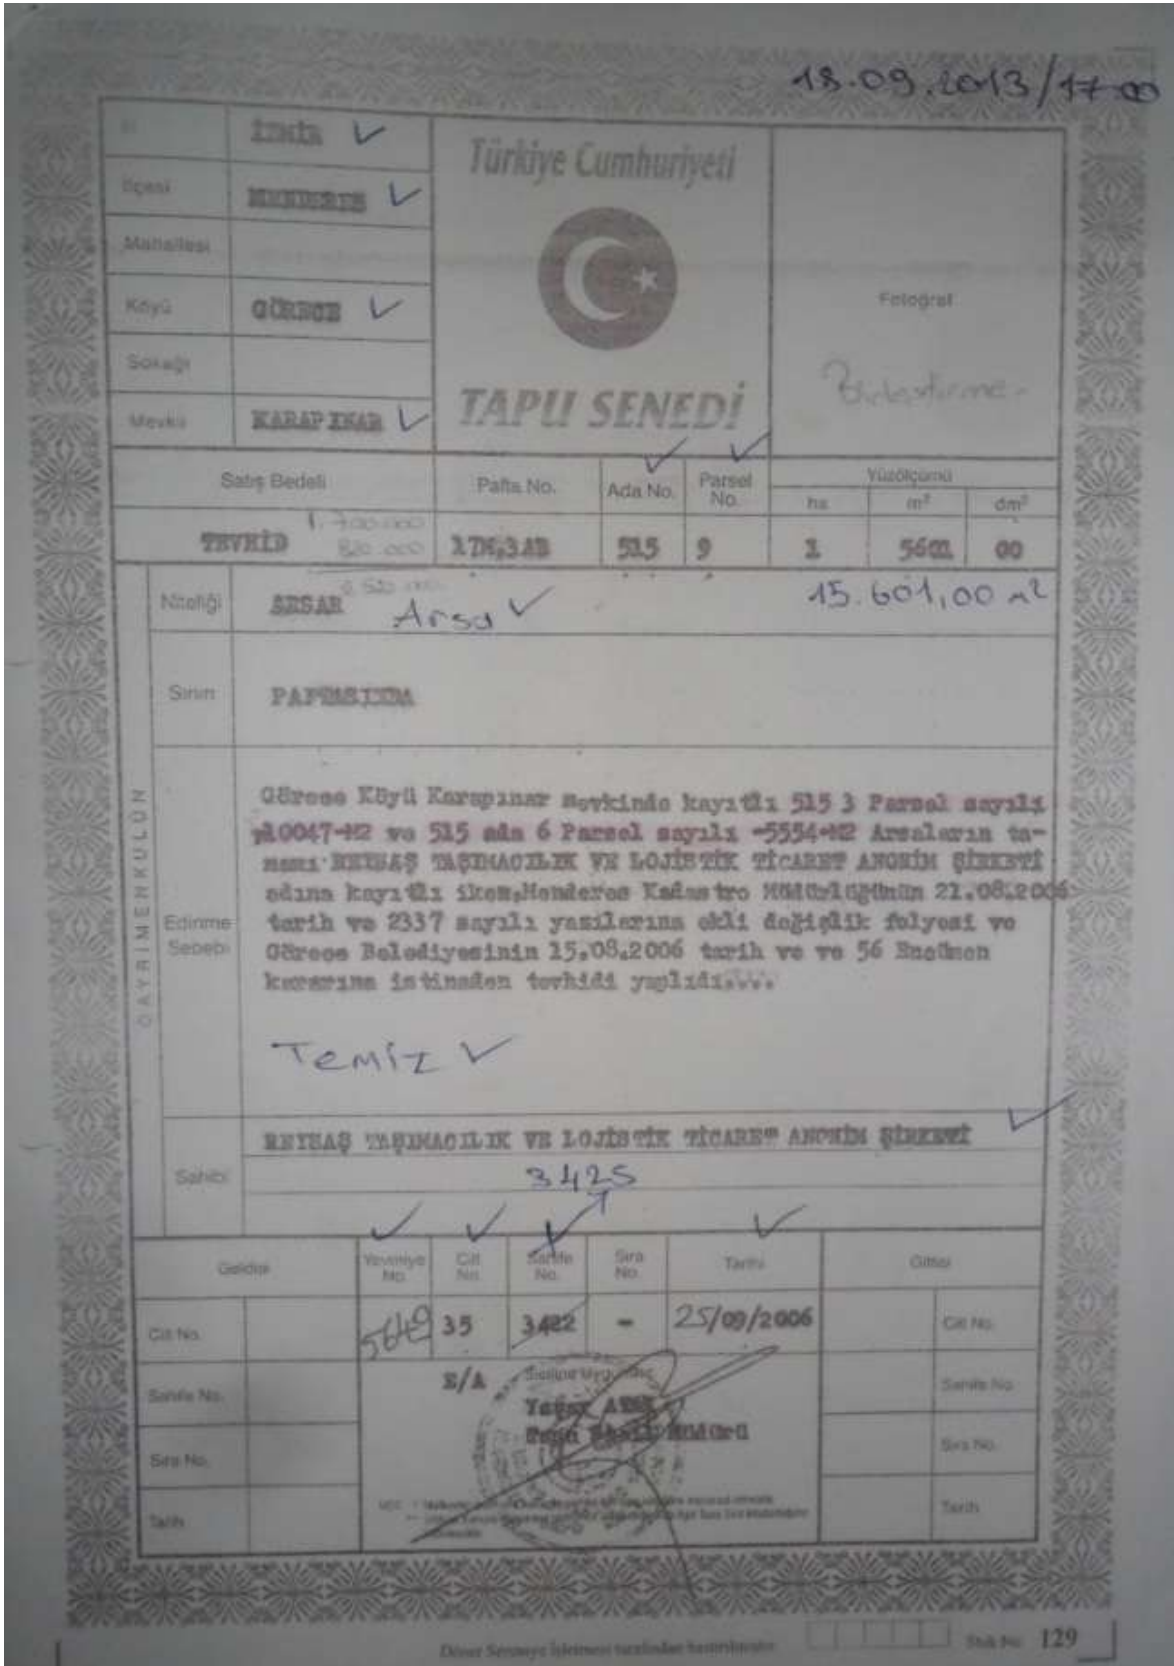 18.09.2013/17:00
İli İZMİR
İlçesi MENDERES
Mahallesi
Köyü GÖRECE
Sokağı
Mevkii KARAPINAR
Türkiye Cumhuriyeti
TAPU SENEDİ
Fotoğraf
Birleştirme
Satış Bedeli
Pafta No.
Ada No.
Parsel No.
Yüzölçümü
ha m² dm²
TEVHİD
1.700.000
820.000
2.520.000
515 9 1 5601 00
Niteliği
Arsa
15.601,00 m²
Sınırı
PAFTASINDA
GAYRİMENKULÜN
Edinme Sebebi
Görece Köyü Karapınar mevkinde kayıtlı 515 3 Parsel sayılı
10047-M2 ve 515 ada 6 Parsel sayılı -5554-M2 Arsaların ta-
mamı REYSAŞ TAŞIMACILIK VE LOJİSTİK TİCARET ANONİM ŞİRKETİ
adına kayıtlı iken,Menderes Kadastro Müdürlüğünün 21.08.2006
tarih ve 2337 sayılı yazılarına ekli değişlik folyesi ve
Görece Belediyesinin 15.08.2006 tarih ve ve 56 Encümen
kararına istinaden tevhidi yapıldı....
Temiz
Sahibi
REYSAŞ TAŞIMACILIK VE LOJİSTİK TİCARET ANONİM ŞİRKETİ
3425
Geldisi
Yevmiye No.
Cilt No.
Sahife No.
Sıra No.
Tarihi
Gittisi
Cilt No.
5649 35 3422 - 25/09/2006
Cilt No.
Sahife No.
E/A
Siciline Uygundur
Yaşar
Tapu Sicil Müdürü
Sahife No.
Sıra No.
Sıra No.
Tarih
Tarih
Döner Sermaye İşletmesi tarafından bastırılmıştır.
Stok No: 129